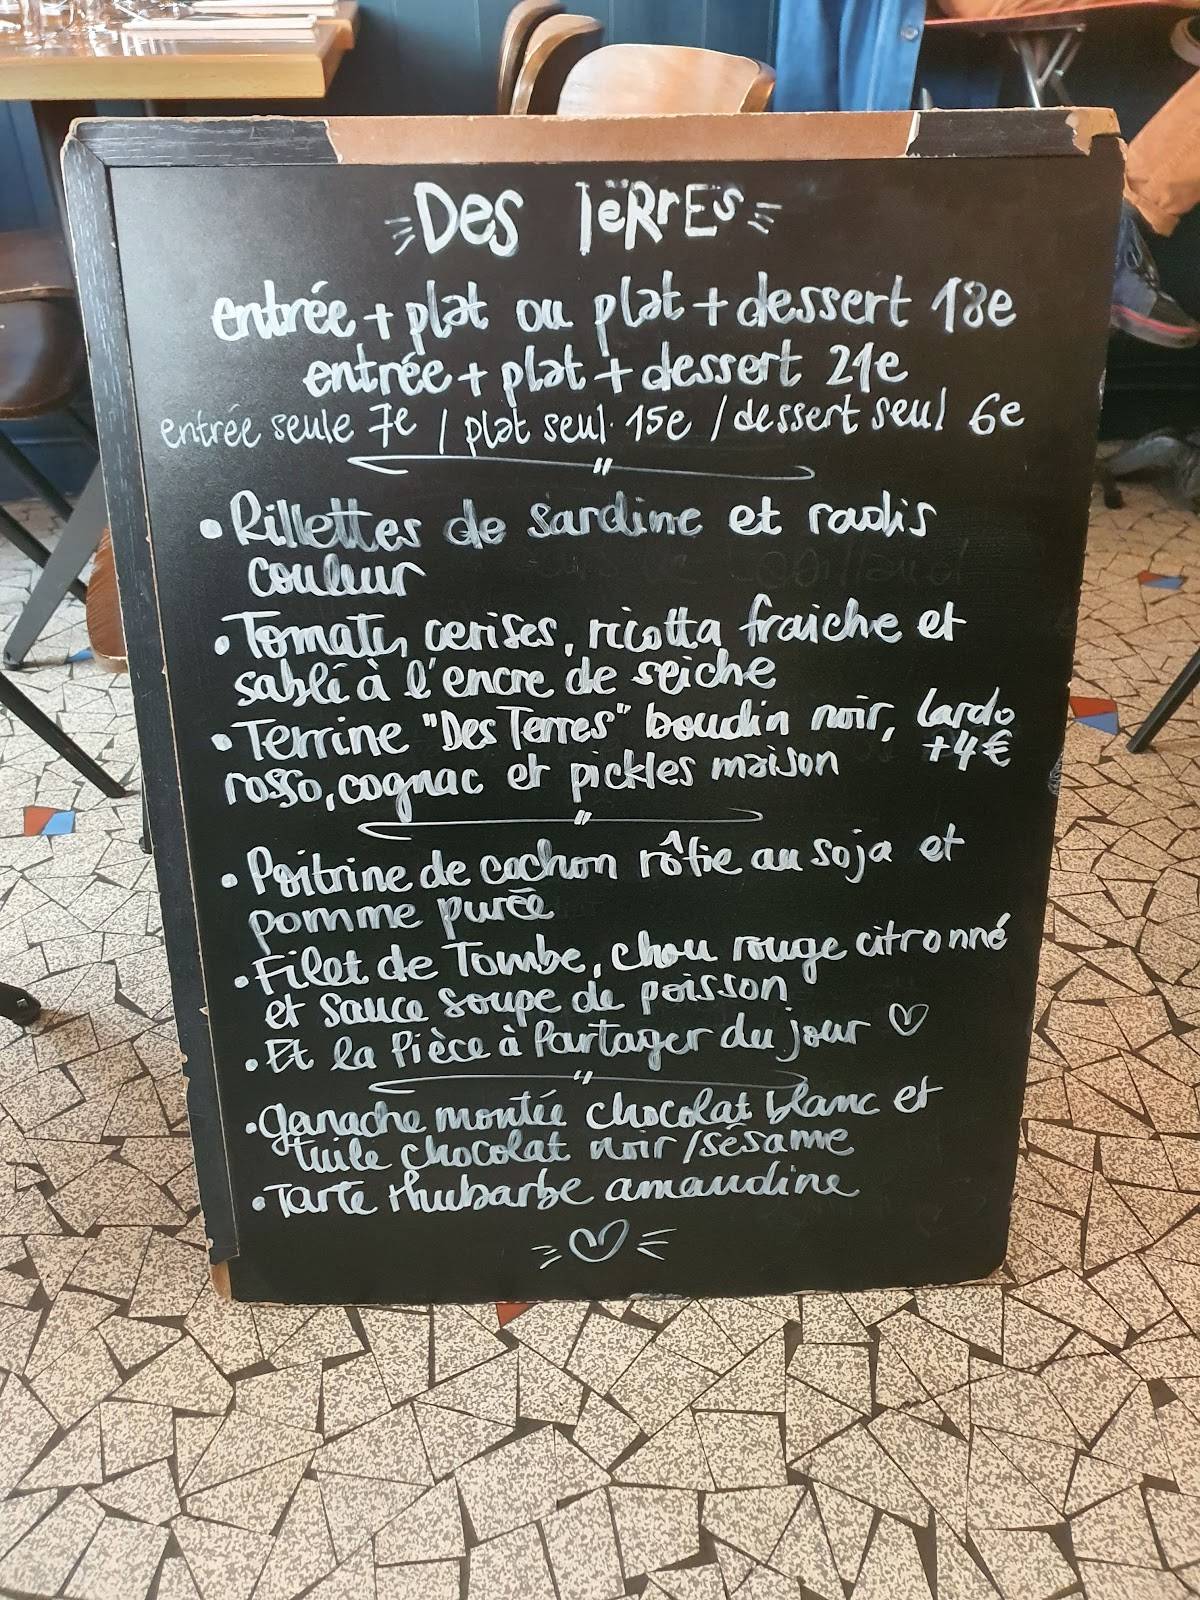 Des TëRrEs
entrée + plat ou plat + dessert 18e
entrée + plat + dessert 21e
entrée seule 7e / plat seul 15e / dessert seul 6e
• Rillettes de sardine et radis
couleur
• Tomates cerises, ricotta fraiche et
sablé à l'encre de seiche
• Terrine "Des Terres" boudin noir, lardo
rosso, cognac et pickles maison +4€
• Poitrine de cochon rôtie au soja et
pomme purée
• Filet de Tombe, chou rouge citronné
et sauce soupe de poisson
• Et la Pièce à Partager du jour ♡
• ganache montée chocolat blanc et
tuile chocolat noir / sésame
• Tarte rhubarbe amandine